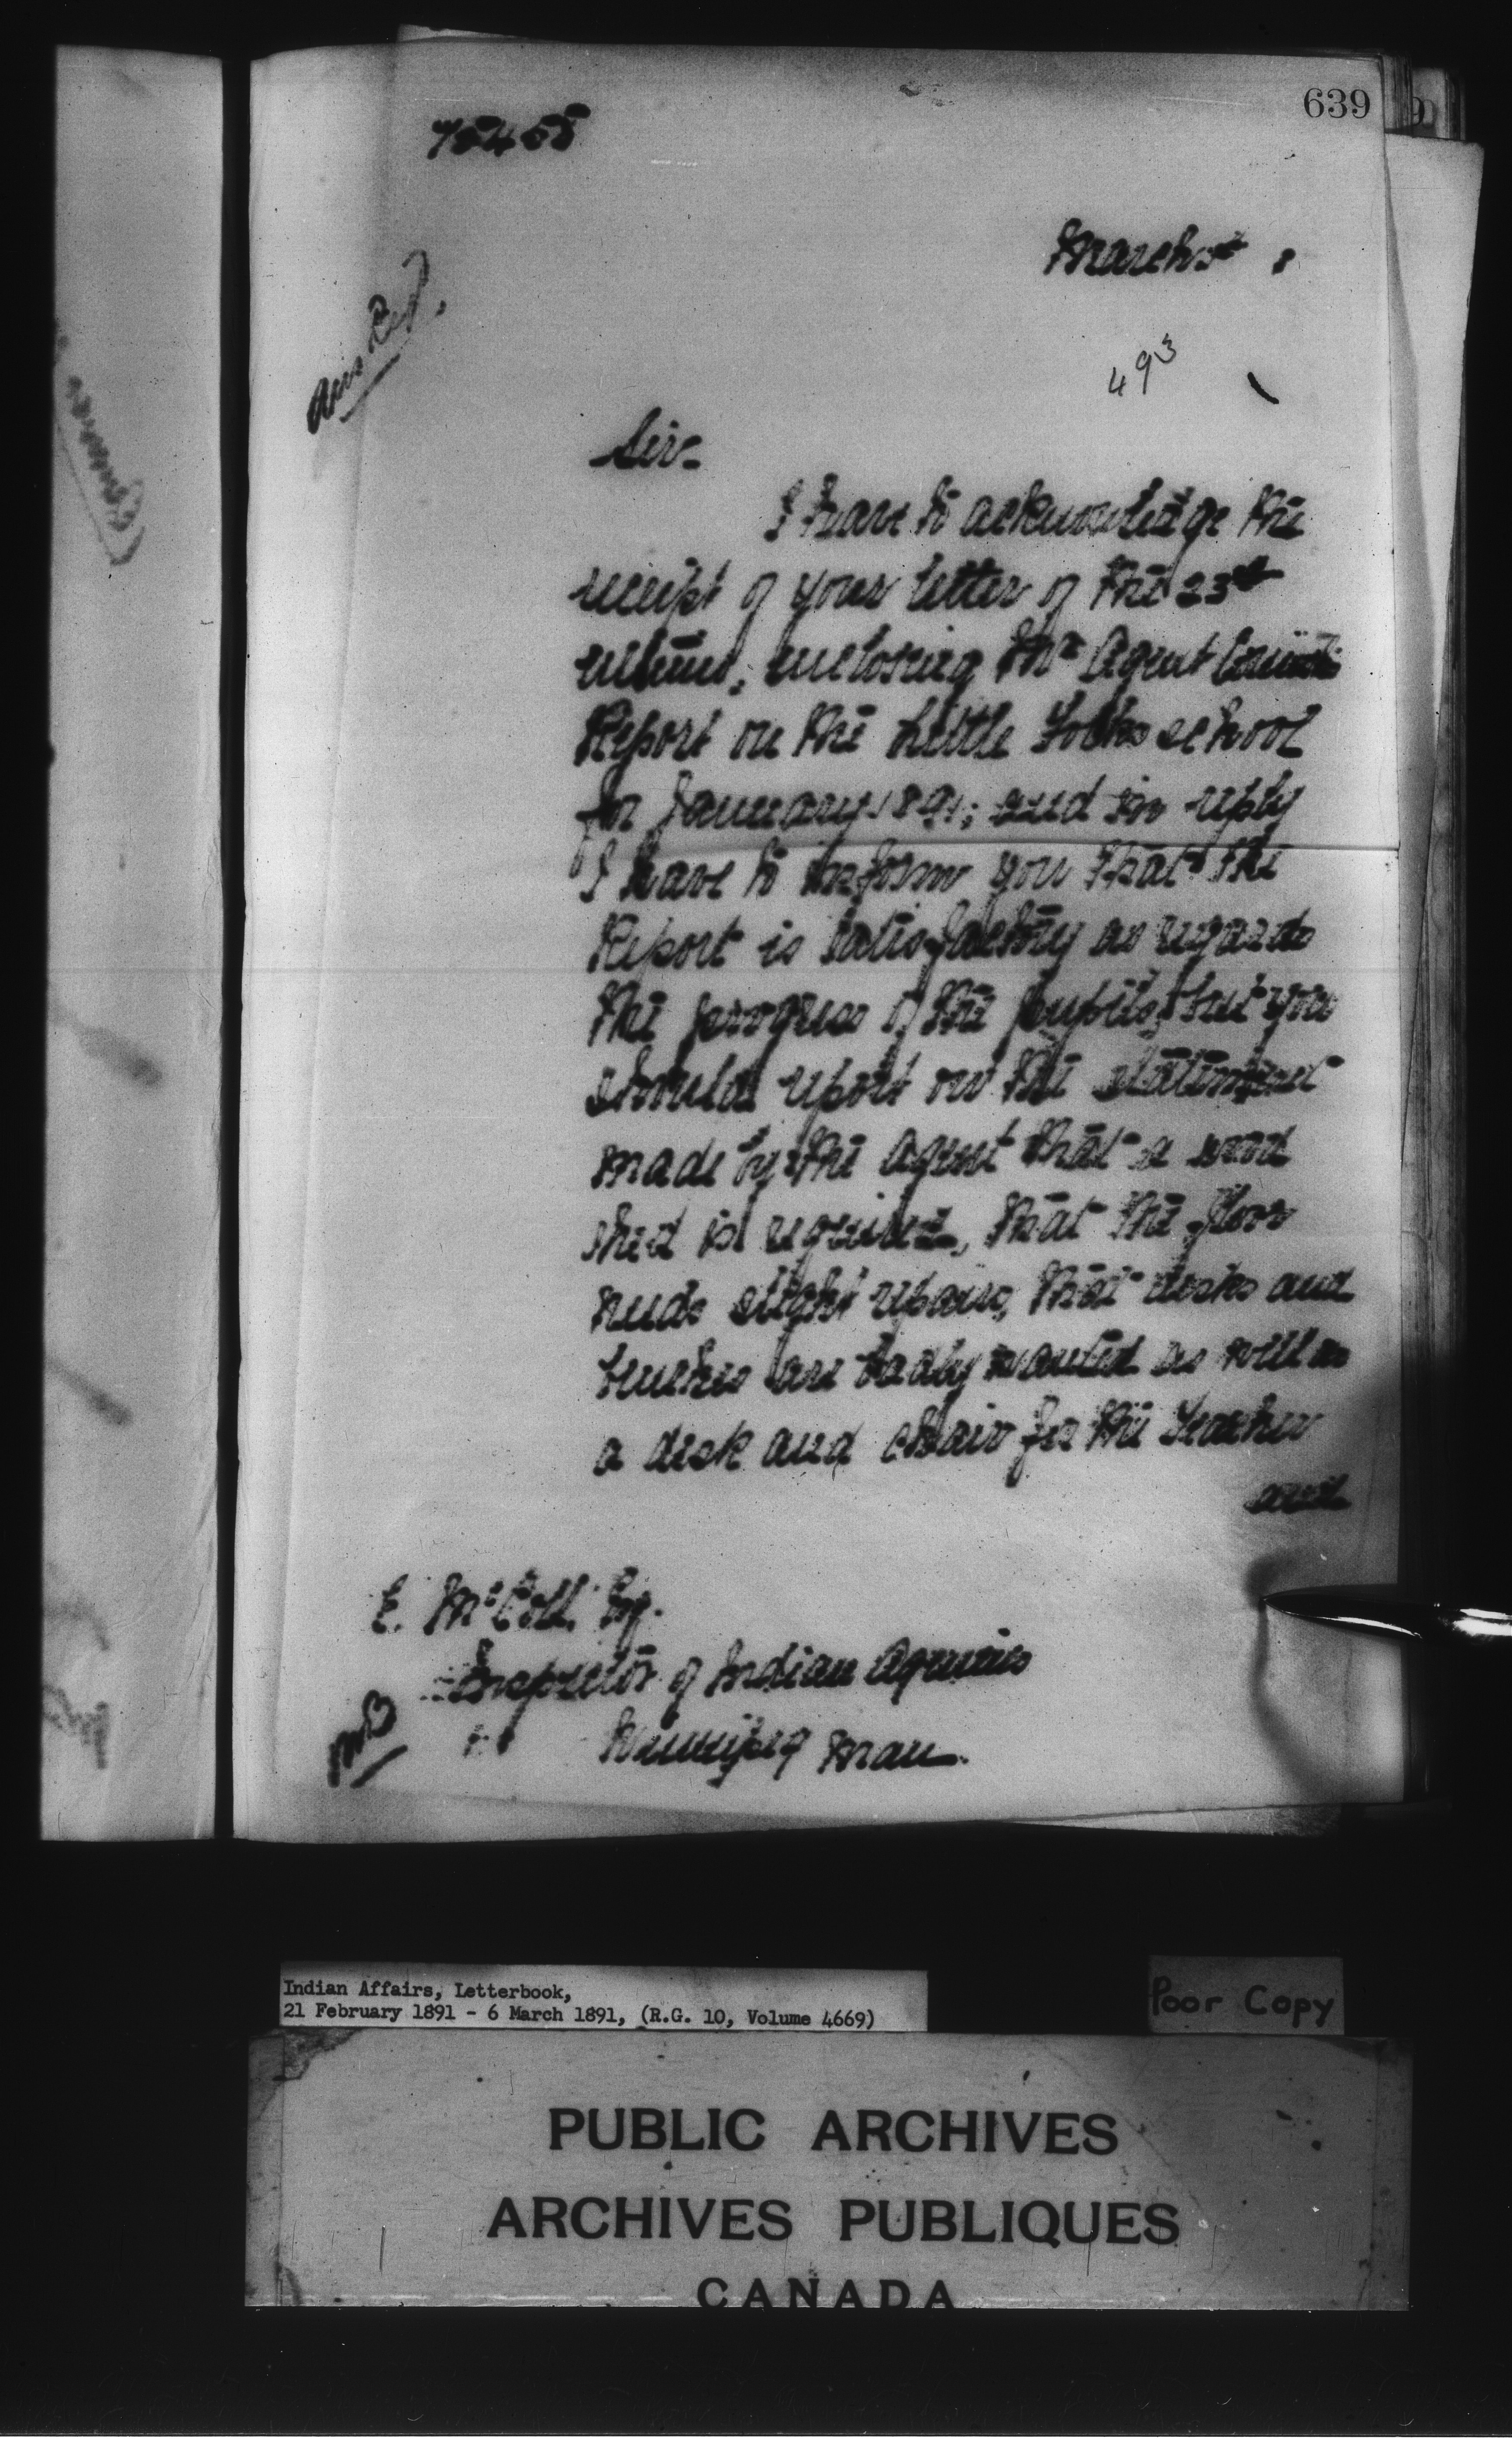 639
75455
March 5th 1
Ans Red.
493
Sir-
I have to acknowledge the
receipt of your letter of the 23rd
ultimo, enclosing Mr Agent
Report on the Little Forks school
for January 1891; and in reply
I have to inform you that the
Report is satisfactory as regards
the progress of the pupils, but you
should report on the statement
made by the Agent that a wood
shed is required, that the floor
needs slight repairs, that desks and
benches are badly wanted as well as
a desk and chair for the Teacher
and
E. McColl Esq.
Inspector of Indian Agencies
Winnipeg Man.
Indian Affairs, Letterbook,
21 February 1891 - 6 March 1891, (R.G. 10, Volume 4669)
Poor Copy
PUBLIC ARCHIVES
ARCHIVES PUBLIQUES
CANADA